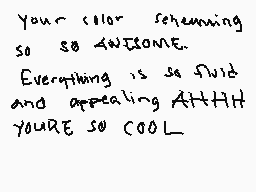 your color schemming
so so AWESOME.
Everything is so fluid
and appealing AHHHH
YOURE SO COOL